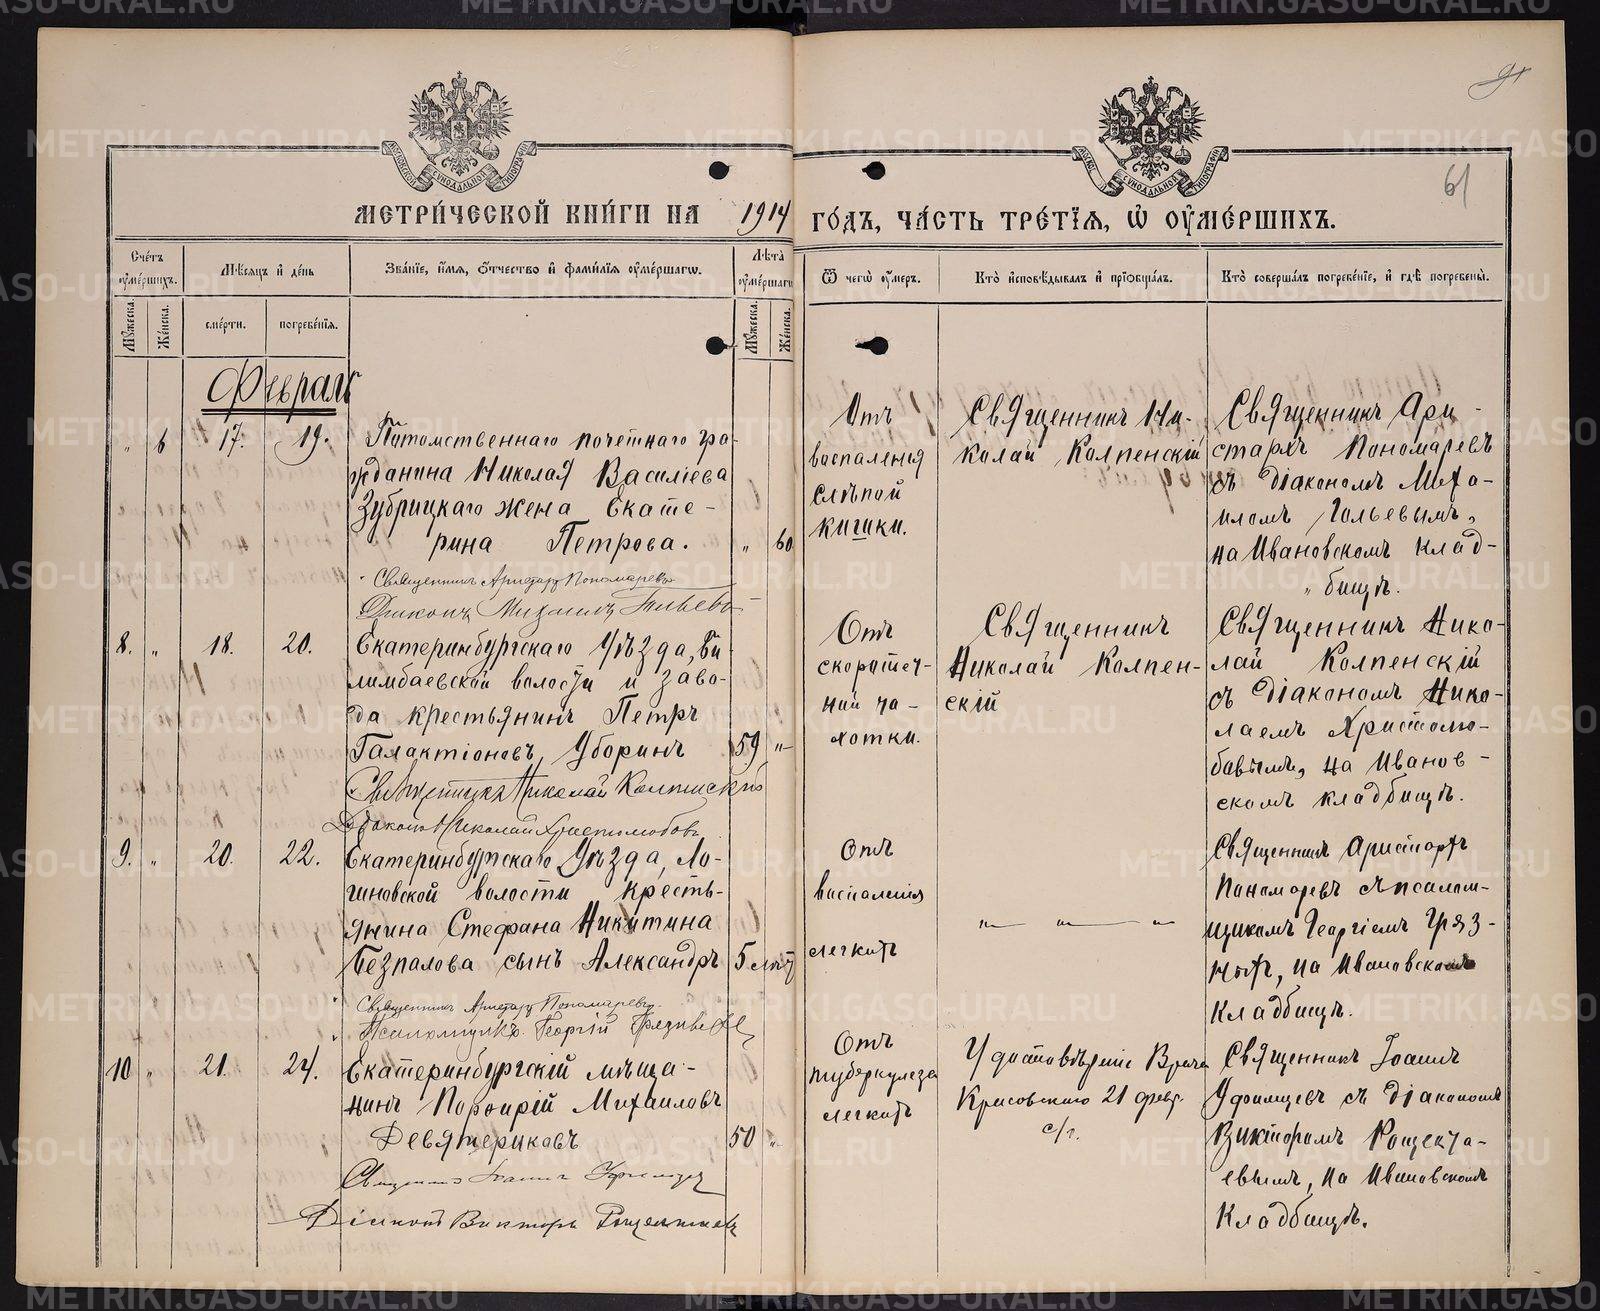 МЕТРИ́ЧЕСКОЙ КНИ́ГИ НА 1914 ГО́ДЪ, ЧА́СТЬ ТРЕ́ТЇѦ, Ѡ҆ ОУ҆МЕ́РШИХЪ.
61
Сче́тъ оу҆ме́ршихъ.
Мꙋ́жеска.
Же́нска.
Мѣ́сѧцъ и҆ де́нь
сме́рти.
погребе́нїѧ.
Зва́нїе, и҆́мѧ, ѻ҆́тчество и҆ фами́лїѧ оу҆ме́ршагѡ.
Лѣ́та оу҆ме́ршагѡ
Мꙋ́жеска.
Же́нска.
Ѿ чегѡ̀ оу҆́меръ.
Кто̀ и҆сповѣ́дывалъ и҆ прїѻбща́лъ.
Кто̀ соверша́лъ погребе́нїе, и҆ гдѣ̀ погребены̀.
Февраль
„ 6 17. 19.
Потомственнаго почетнаго гра-
жданина Николая Василіева
Зубрицкаго жена Екате-
рина Петрова. „ 60
Священникъ Аристархъ Пономаревъ
Діаконъ Михаилъ Гольевъ
Отъ
воспаленія
слѣпой
кишки.
Священникъ Ни-
колай Колпенскій
Священникъ Ари-
стархъ Пономаревъ
съ діакономъ Миха-
иломъ Гольевымъ,
на Ивановскомъ клад-
„ бищѣ.
8. „ 18. 20.
Екатеринбургскаго уѣзда, Би-
лимбаевской волости и заво-
да крестьянинъ Петръ
Галактіоновъ Уборинъ 59 „
Священникъ Николай Колпенскій
Діаконъ Николай Христолюбовъ
Отъ
скоротеч-
ной ча-
хотки.
Священникъ
Николай Колпен-
скій
Священникъ Нико-
лай Колпенскій
съ діакономъ Нико-
лаемъ Христолю-
бовымъ, на Иванов-
скомъ кладбищѣ.
9. „ 20. 22.
Екатеринбургскаго уѣзда, Ло-
гиновской волости кресть-
янина Стефана Никитина
Безпалова сынъ Александръ 5 лѣтъ
Священникъ Аристархъ Пономаревъ.
Псаломщикъ Георгій Грязныхъ
Отъ
воспаленія
легкихъ
„ — „ — „
Священникъ Аристархъ
Пономаревъ съ псалом-
щикомъ Георгіемъ Гряз-
ныхъ, на Ивановскомъ
кладбищѣ.
10 „ 21. 24.
Екатеринбургскій мѣща-
нинъ Порфирій Михаиловъ
Девятериковъ 50 „
Священникъ Іоаннъ Уфимцевъ
Діаконъ Викторъ Рощектаевъ
Отъ
туберкулеза
легкихъ
Удостовѣреніе Врача
21 февр.
с/г.
Священникъ Іоаннъ
Уфимцевъ съ діакономъ
Викторомъ Рощекта-
евымъ, на Ивановскомъ
кладбищѣ.
METRIKI.GASO-URAL.RU